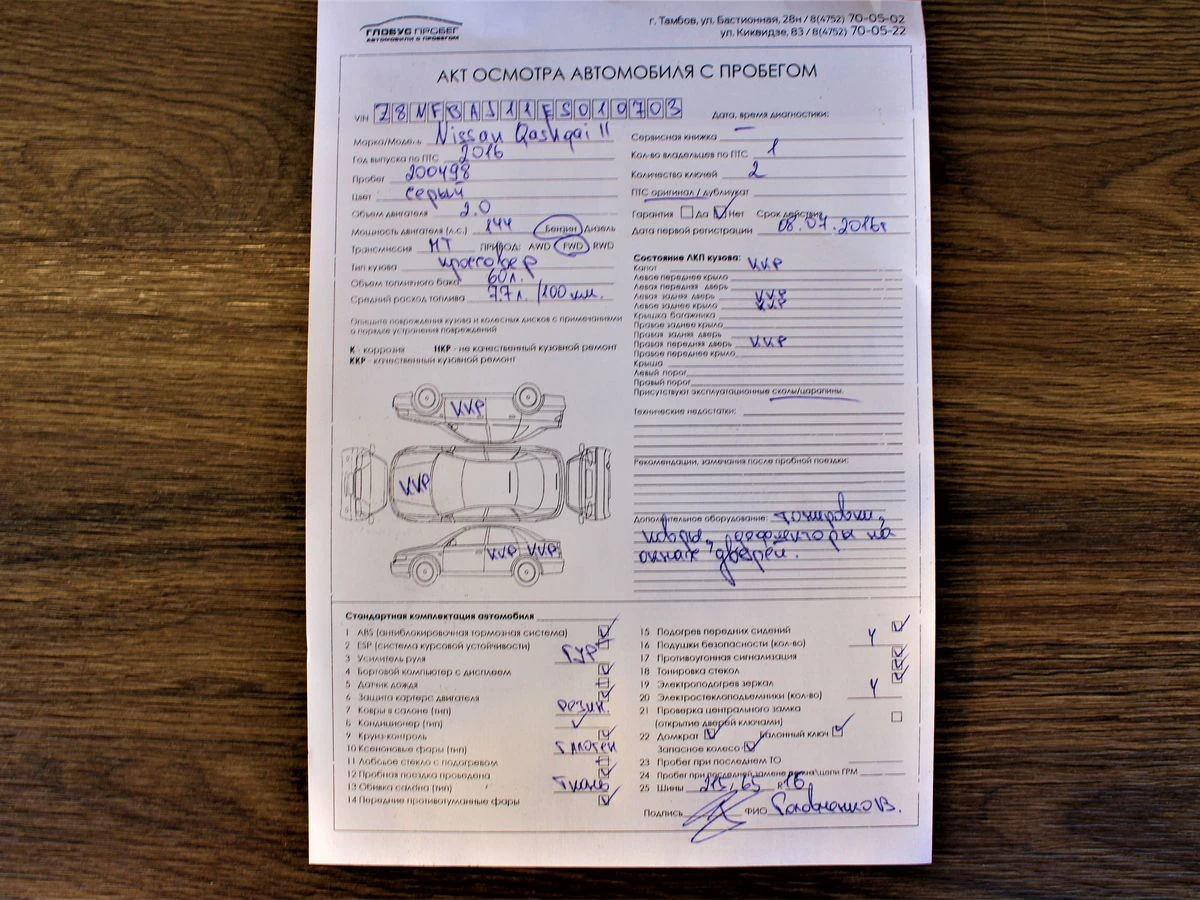 ГЛОБУС ПРОБЕГ
АВТОМОБИЛИ С ПРОБЕГОМ
г. Тамбов, ул. Бастионная, 28н / 8(4752) 70-05-02
ул. Киквидзе, 83 / 8(4752) 70-05-22
АКТ ОСМОТРА АВТОМОБИЛЯ С ПРОБЕГОМ
VIN Z8NFBAJ11ES010703
Марка/Модель Nissan Qashqai II
Год выпуска по ПТС 2016
Пробег 200498
Цвет серый
Объем двигателя 2.0
Мощность двигателя (л.с.) 144 Бензин Дизель
Трансмиссия МТ ПРИВОД: AWD FWD RWD
Тип кузова кроссовер
Объем топливного бака 60л.
Средний расход топлива 7.7л. /100 км.
Опишите повреждения кузова и колесных дисков с примечаниями
о порядке устранения повреждений
К - коррозия НКР - не качественный кузовной ремонт
ККР - качественный кузовной ремонт
ККР
ККР
ККР ККР
Дата, время диагностики:
Сервисная книжка —
Кол-во владельцев по ПТС 1
Количество ключей 2
ПТС оригинал / дубликат
Гарантия Да Нет Срок действия
Дата первой регистрации 08.07.2016г
Состояние ЛКП кузова:
Капот ККР
Левое переднее крыло
Левая передняя дверь
Левая задняя дверь ККР
Левое заднее крыло ККР
Крышка багажника
Правое заднее крыло
Правая задняя дверь
Правая передняя дверь ККР
Правое переднее крыло
Крыша
Левый порог
Правый порог
Присутствуют эксплуатационные сколы/царапины.
Технические недостатки:
Рекомендации, замечания после пробной поездки:
Дополнительное оборудование: тонировка,
ковры, дефлекторы на
окнах дверей.
Стандартная комплектация автомобиля
1 ABS (антиблокировочная тормозная система)
2 ESP (система курсовой устойчивости)
3 Усилитель руля ГУР
4 Бортовой компьютер с дисплеем
5 Датчик дождя
6 Защита картера двигателя
7 Ковры в салоне (тип) резин.
8 Кондиционер (тип)
9 Круиз-контроль
10 Ксеноновые фары (тип)
11 Лобовое стекло с подогревом
12 Пробная поездка проведена
13 Обивка салона (тип) ткань
14 Передние противотуманные фары
15 Подогрев передних сидений
16 Подушки безопасности (кол-во) 4
17 Противоугонная сигнализация
18 Тонировка стекол
19 Электроподогрев зеркал
20 Электростеклоподъемники (кол-во) 4
21 Проверка центрального замка
(открытие дверей ключами)
22 Домкрат Балонный ключ
Запасное колесо
23 Пробег при последнем ТО
24 Пробег при последней замене ремня\цепи ГРМ
25 Шины 215/65 R 16
Подпись ФИО Головченко В.